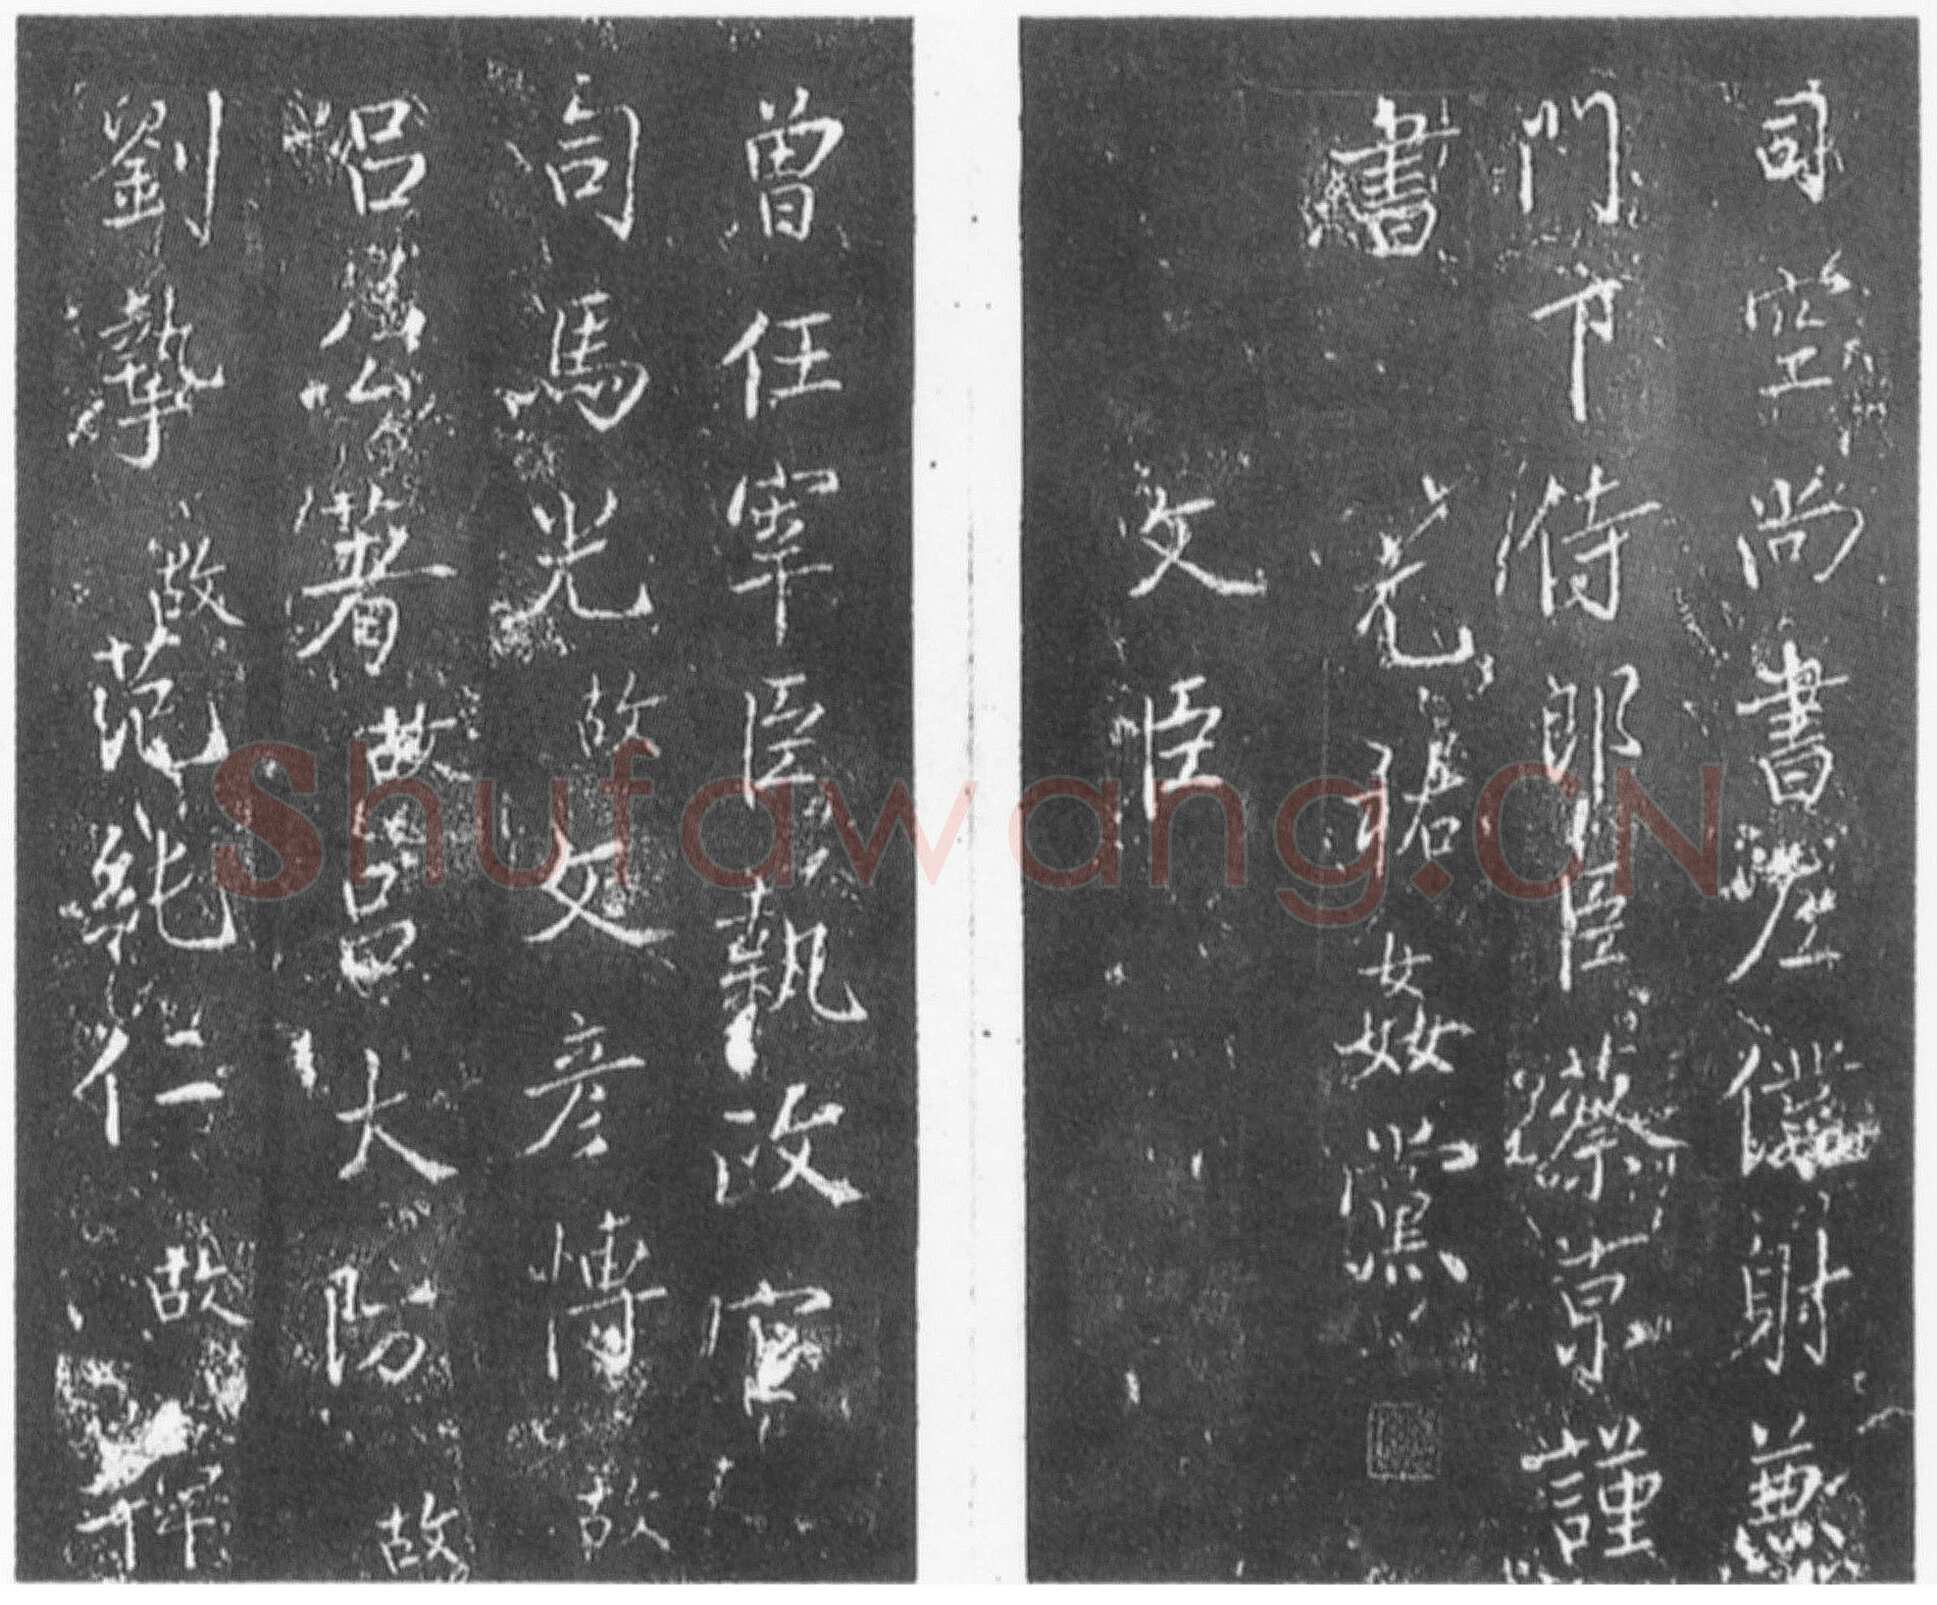 司空尚書左僕射兼
門下侍郎臣蔡京謹
書
元祐姦黨
文臣
曾任宰臣執政官
司馬光 故 文彦博 故
呂公著 故 呂大防 故
劉摯 故 范純仁 故
Shufawang.CN